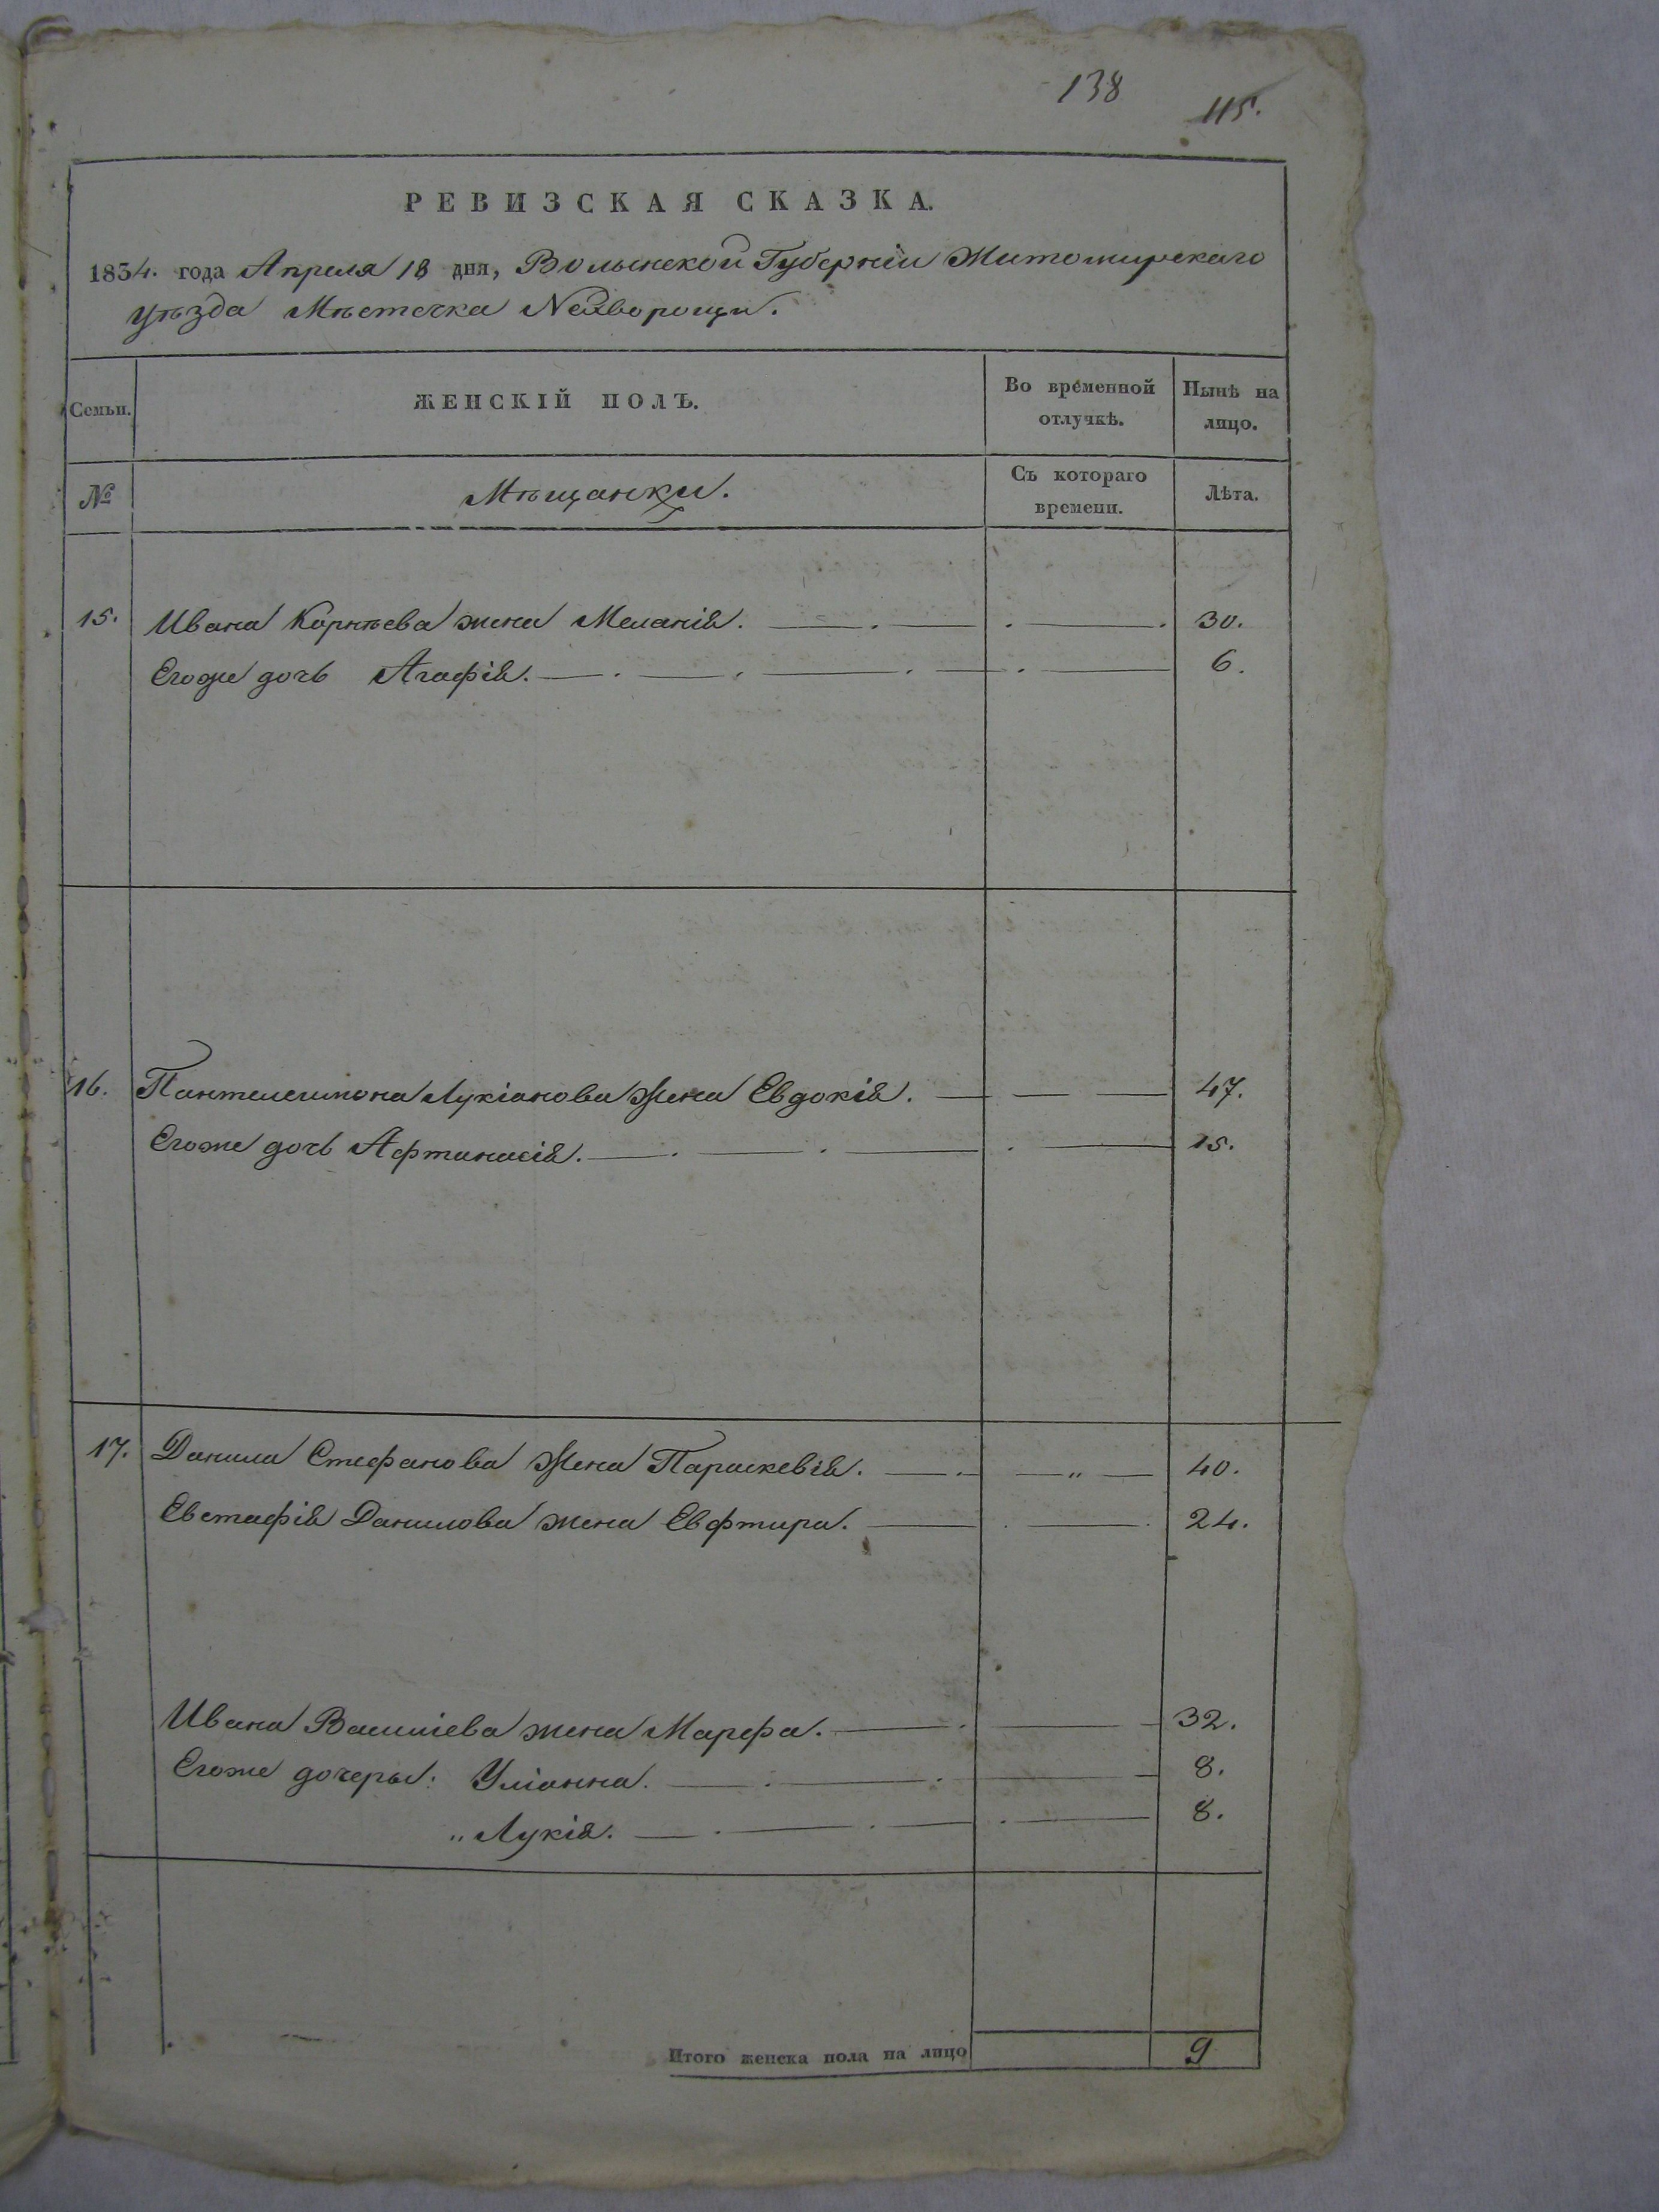 138
115.
РЕВИЗСКАЯ СКАЗКА.
1834. года Апреля 18 дня, Волынской Губерніи Житомирскаго
уѣзда Мѣстечка Nехворощи.
Семьи. ЖЕНСКІЙ ПОЛЪ. Во временной отлучкѣ. Нынѣ на лицо.
№ Мѣщанки. Съ котораго времени. Лѣта.
15. Ивана Корнѣева жена Меланія. 30.
Егоже дочь Агафія. 6.
16. Пантелеимона Лукіанова Жена Евдокія. 47.
Егоже дочь Афтанасія. 15.
17. Данила Стефанова Жена Параскевія. 40.
Евстафія Данилова жена Евфтира. 24.
Ивана Василіева жена Марфа. 32.
Егоже дочеры: Уліанна. 8.
" Лукія. 8.
Итого женска пола на лицо 9